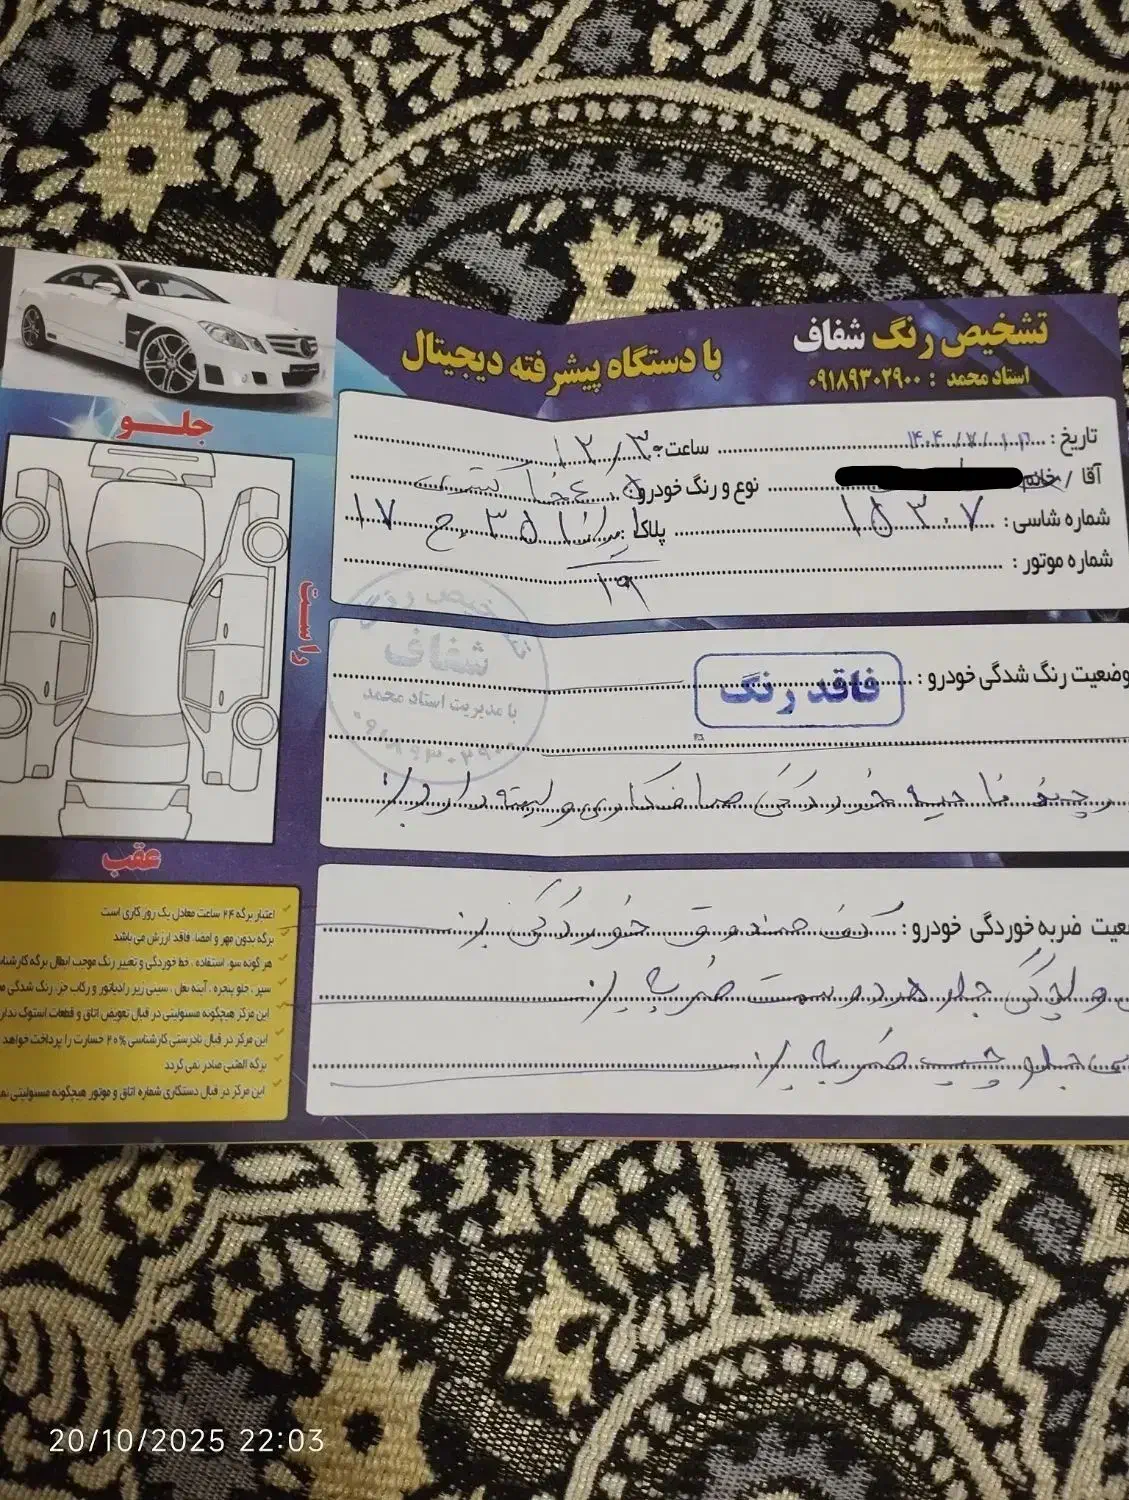 تشخیص رنگ شفاف
با دستگاه پیشرفته دیجیتال
استاد محمد : ۰۹۱۸۹۳۰۲۹۰۰
تاریخ : ۱۴۰۴/۷/
ساعت: ۱۲/۳۰
آقا / خانم
نوع و رنگ خودرو:
شماره شاسی : ۱۵۳۰۷
پلاک: ایران ۳۵
۱۷
۱۹
شماره موتور :
وضعیت رنگ شدگی خودرو :
فاقد رنگ
تشخیص رنگ
شفاف
با مدیریت استاد محمد
۰۹۱۸۹۳۰۲۹۰۰
چند ناحیه خوردگی صافکاری و لیسه دارد
ضربه خوردگی خودرو : کف صندوق خوردگی
جلو هر دو سمت ضربه
جلو چپ ضربه
جلــو
راست
عقب
اعتبار برگه ۲۴ ساعت معادل یک روز کاری است
برگه بدون مهر و امضا، فاقد ارزش می باشد
هر گونه سو، استفاده ، خط خوردگی و تغییر رنگ موجب ابطال برگه
سپر ، جلو پنجره ، آینه بغل ، سینی زیر رادیاتور و رکاب جز، رنگ شدگی
این مرکز هیچگونه مسئولیتی در قبال تعویض اتاق و قطعات استوک
این مرکز در قبال نادرستی کارشناسی ۲۰% خسارت را پرداخت خواهد
برگه المثنی صادر نمی گردد
این مرکز در قبال دستکاری شماره اتاق و موتور هیچگونه مسئولیتی
20/10/2025 22:03